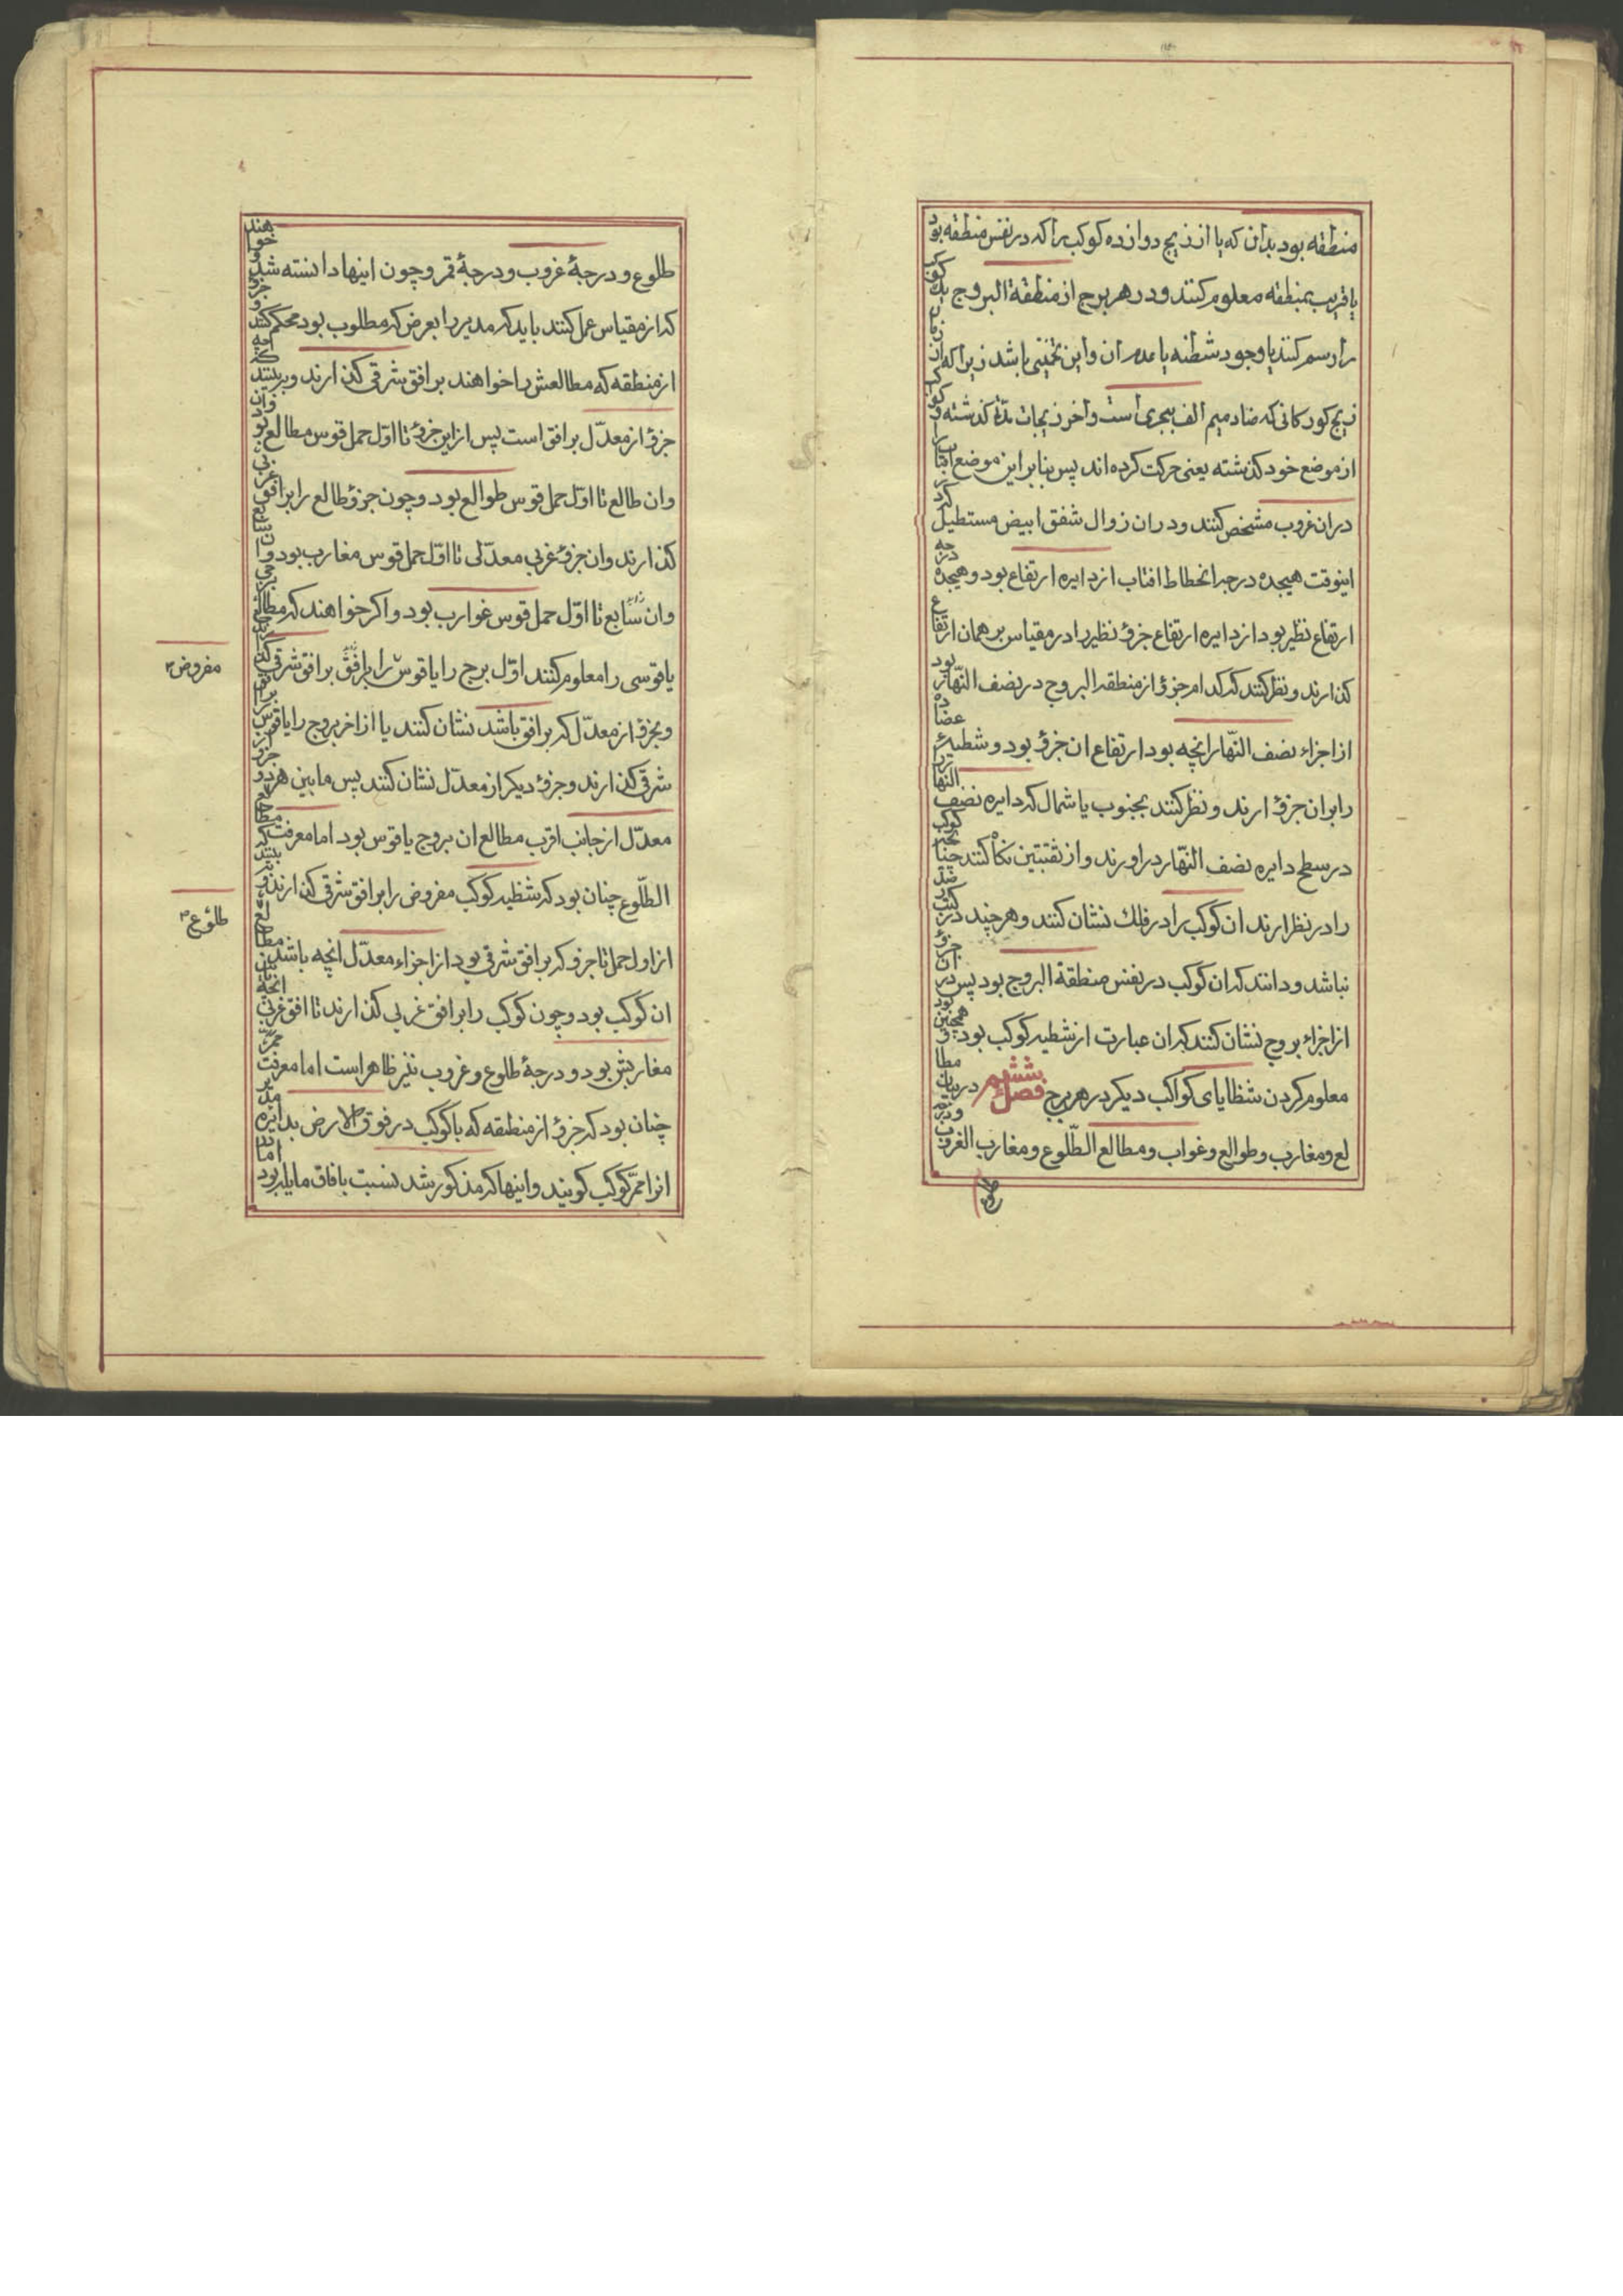 منطقه بود بدان که یا از زیج دوازده کوکب را که در نفس منطقه بود
یا قریب بمنطقه معلوم کنند و در هر برج از منطقة البروج یک کوکب
را رسم کنند با وجود شطنه یا عدم ان و این تخمینی باشد زیرا که از زمان
زیج کورکانی که ضاد میم الف هجری است و اخر زیجات مدتها کذشته و کوکب
از موضع خود کذشته یعنی حرکت کرده اند پس بنابراین موضع افتاب
در ان غروب مشخص کنند و در ان زوال شفق ابیض مستطیل که در
اینوقت هیجده درجه انحطاط افتاب از دایره ارتفاع بود و هیجده درجه
ارتفاع نظیر بود از دایره ارتفاع جزؤ نظیر را در مقیاس بر همان ارتفاع
کذارند و نظر کنند که کدام جزؤ از منطقه البروج در نصف النهار بود
از اجزاء نصف النهار انچه بود ارتفاع ان جزؤ بود و شطیهٔ عضاده
را بر ان جزؤ ارند و نظر کنند بجنوب یا شمال که دایره نصف النهار
در سطح دایره نصف النهار در اورند و از ثقبتین نکاه کنند چنانچه کوکب
را در نظر ارند ان کوکب را در فلک نشان کنند و هر چند در کتب
نباشد و دانند که ان کوکب در نفس منطقة البروج بود پس در ان جزؤ
از اجزاء بروج نشان کنند که ان عبارت از شطیه کوکب بود و همچنین بود
معلوم کردن شظایای کواکب دیکر در هر برج فصل ششم در بیان مطا
لع و مغارب و طوالع و غوارب و مطالع الطلوع و مغارب الغروب و درجه
طلوع
طلوع و درجهٔ غروب و درجهٔ قمر و چون اینها دانسته شد و خواهند
که از مقیاس عمل کنند باید که مدیر را بعرض که مطلوب بود محکم کنند و جزؤ
از منطقه که مطالعش را خواهند بر افق شرقی کذارند و ببینند که چه
جزؤ از معدل بر افق است پس از این جزؤ تا اول حمل قوس مطالع بود
و ان طالع تا اول حمل قوس طوالع بود و چون جزؤ طالع را بر افق غربی
کذارند و ان جزؤ غربی معدلی تا اول حمل قوس مغارب بود و
و ان سابع تا اول حمل قوس غوارب بود و اکر خواهند که مطالع برجی
یا قوسی را معلوم کنند اول برج را یا قوس را بر افق شرقی کذارند
و بجزؤ از معدل که بر افق باشد نشان کنند یا از اخر بروج را یا قوس
شرقی کذارند و جزؤ دیکر از معدل نشان کنند پس ما بین هر دو جزؤ
معدل از جانب اقرب مطالع ان بروج یا قوس بود اما معرفت مطالع
الطلوع چنان بود که شظیه کوکب مفروض را بر افق شرقی کذارند و ببینند که
از اول حمل تا جزو که بر افق شرقی بود از اجزاء معدل انچه باشد مطالع
ان کوکب بود و چون کوکب را بر افق غربی کذارند تا افق غربی انچه
مغاربش بود و درجهٔ طلوع و غروب نیز ظاهر است اما معرفت ممر
چنان بود که جزؤ از منطقه که با کوکب در فوق الارض بدایره
انرا ممر کوکب کویند و اینها که مذکور شد نسبت بافاق مایله بود اما
مفروض
طلوع